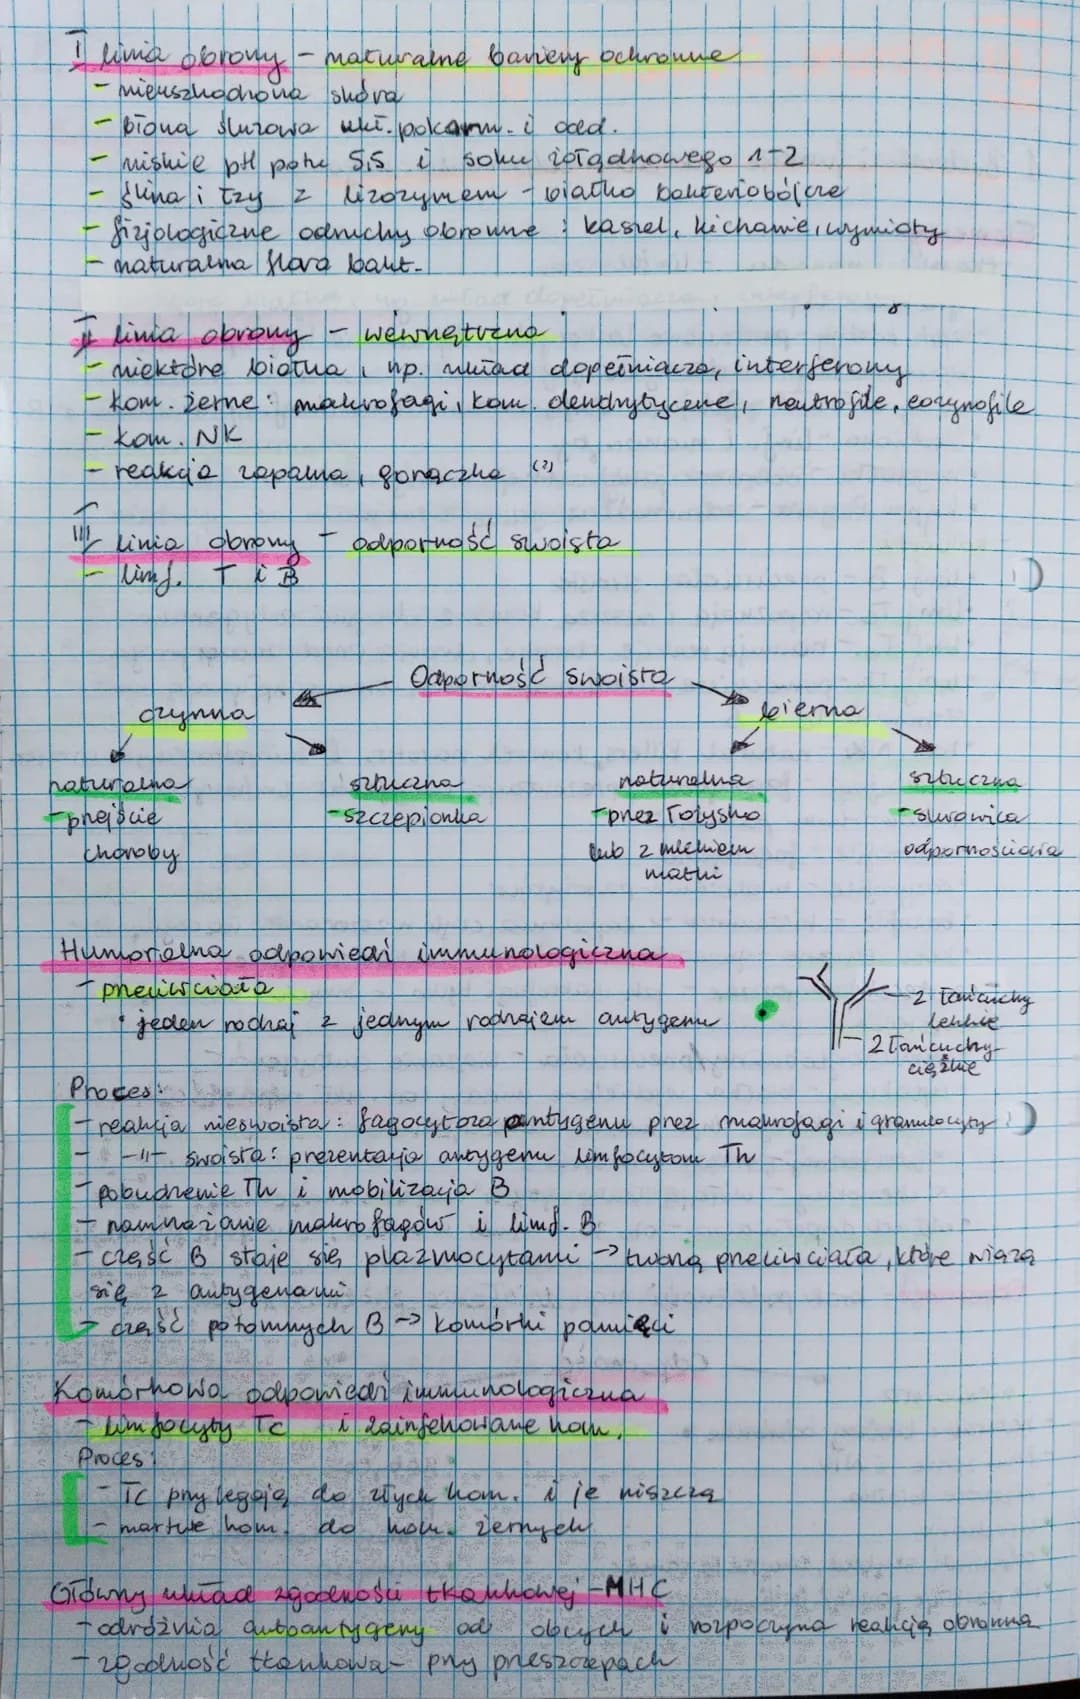 I linia obrony - naturalne bariery ochronne
- nieuszkodzona skóra
- błona śluzowa ukł. pokarm. i odd.
- niskie pH potu 5,5 i soku żołądkowego 1-2
- ślina i łzy z lizozymem - białko bakteriobójcze
- fizjologiczne odruchy obronne : kaszel, kichanie, wymioty
- naturalna flora bakt.
II linia obrony - wewnętrzna
- niektóre białka, np. układ dopełniacza, interferony
- kom. żerne: makrofagi, kom. dendrytyczne, neutrofile, eozynofile
- kom. NK
- reakcja zapalna, gorączka (?)
III linia obrony - odporność swoista
- limf. T i B
Odporność swoista
czynna bierna
naturalna sztuczna naturalna sztuczna
- przejście - szczepionka - przez łożysko - surowica
choroby lub z mlekiem odpornościowa
matki
Humoralna odpowiedź immunologiczna
- przeciwciała
• jeden rodzaj z jednym rodzajem antygenu
2 łańcuchy
lekkie
2 łańcuchy
ciężkie
Proces:
- reakcja nieswoista: fagocytoza antygenu przez makrofagi i granulocyty
- -||- swoista: prezentacja antygenu limfocytom Th
- pobudzenie Th i mobilizacja B
- namnażanie makrofagów i limf. B
- część B staje się plazmocytami -> tworzą przeciwciała, które wiążą
się z antygenami
- część potomnych B -> komórki pamięci
Komórkowa odpowiedź immunologiczna
- limfocyty Tc i zainfekowane kom.
Proces:
- Tc przylegają do złych kom. i je niszczą
- martwe kom. do kom. żernych
Główny układ zgodności tkankowej - MHC
- odróżnia autoantygeny od obcych i rozpoczyna reakcję obronną
- zgodność tkankowa - przy przeszczepach